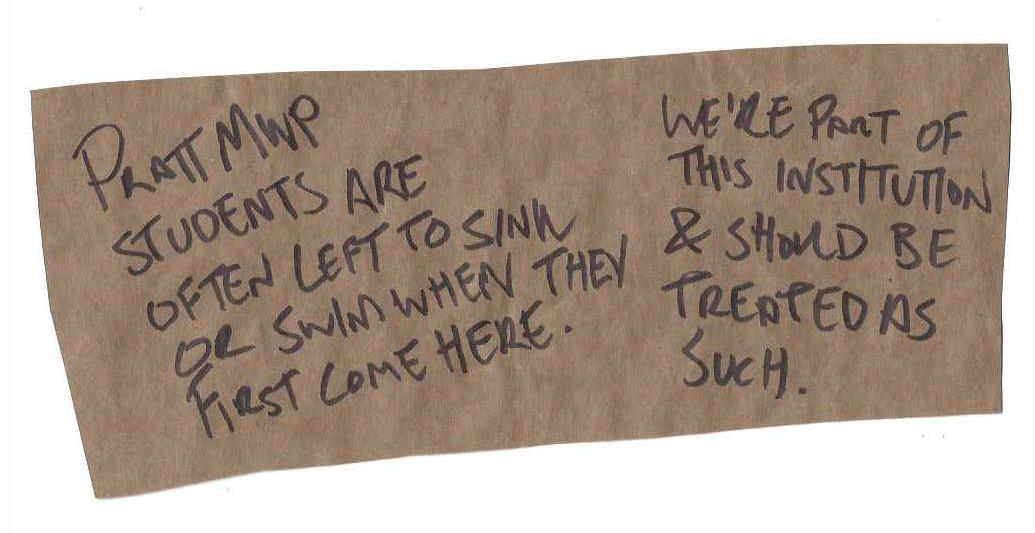 PRATT MWP
STUDENTS ARE
OFTEN LEFT TO SINK
OR SWIM WHEN THEY
FIRST COME HERE.
WE'RE PART OF
THIS INSTITUTION
& SHOULD BE
TREATED AS
SUCH.